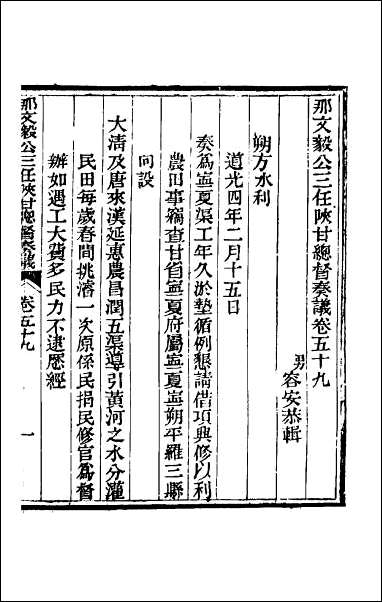 那文毅公三任陝甘總督奏議卷五十九
男容安恭輯
朔方水利
道光四年二月十五日
奏爲寧夏渠工年久於墊循例懇請借項興修以利
農田事竊查甘省寧夏府屬寧夏寧朔平羅三縣
向設
大清及唐來漢延惠農昌潤五渠導引黃河之水分灌
民田每歲春間挑濬一次原係民捐民修官爲督
辦如遇工大費多民力不逮歷經
那文毅公三任陝甘總督奏議
卷五十九
一